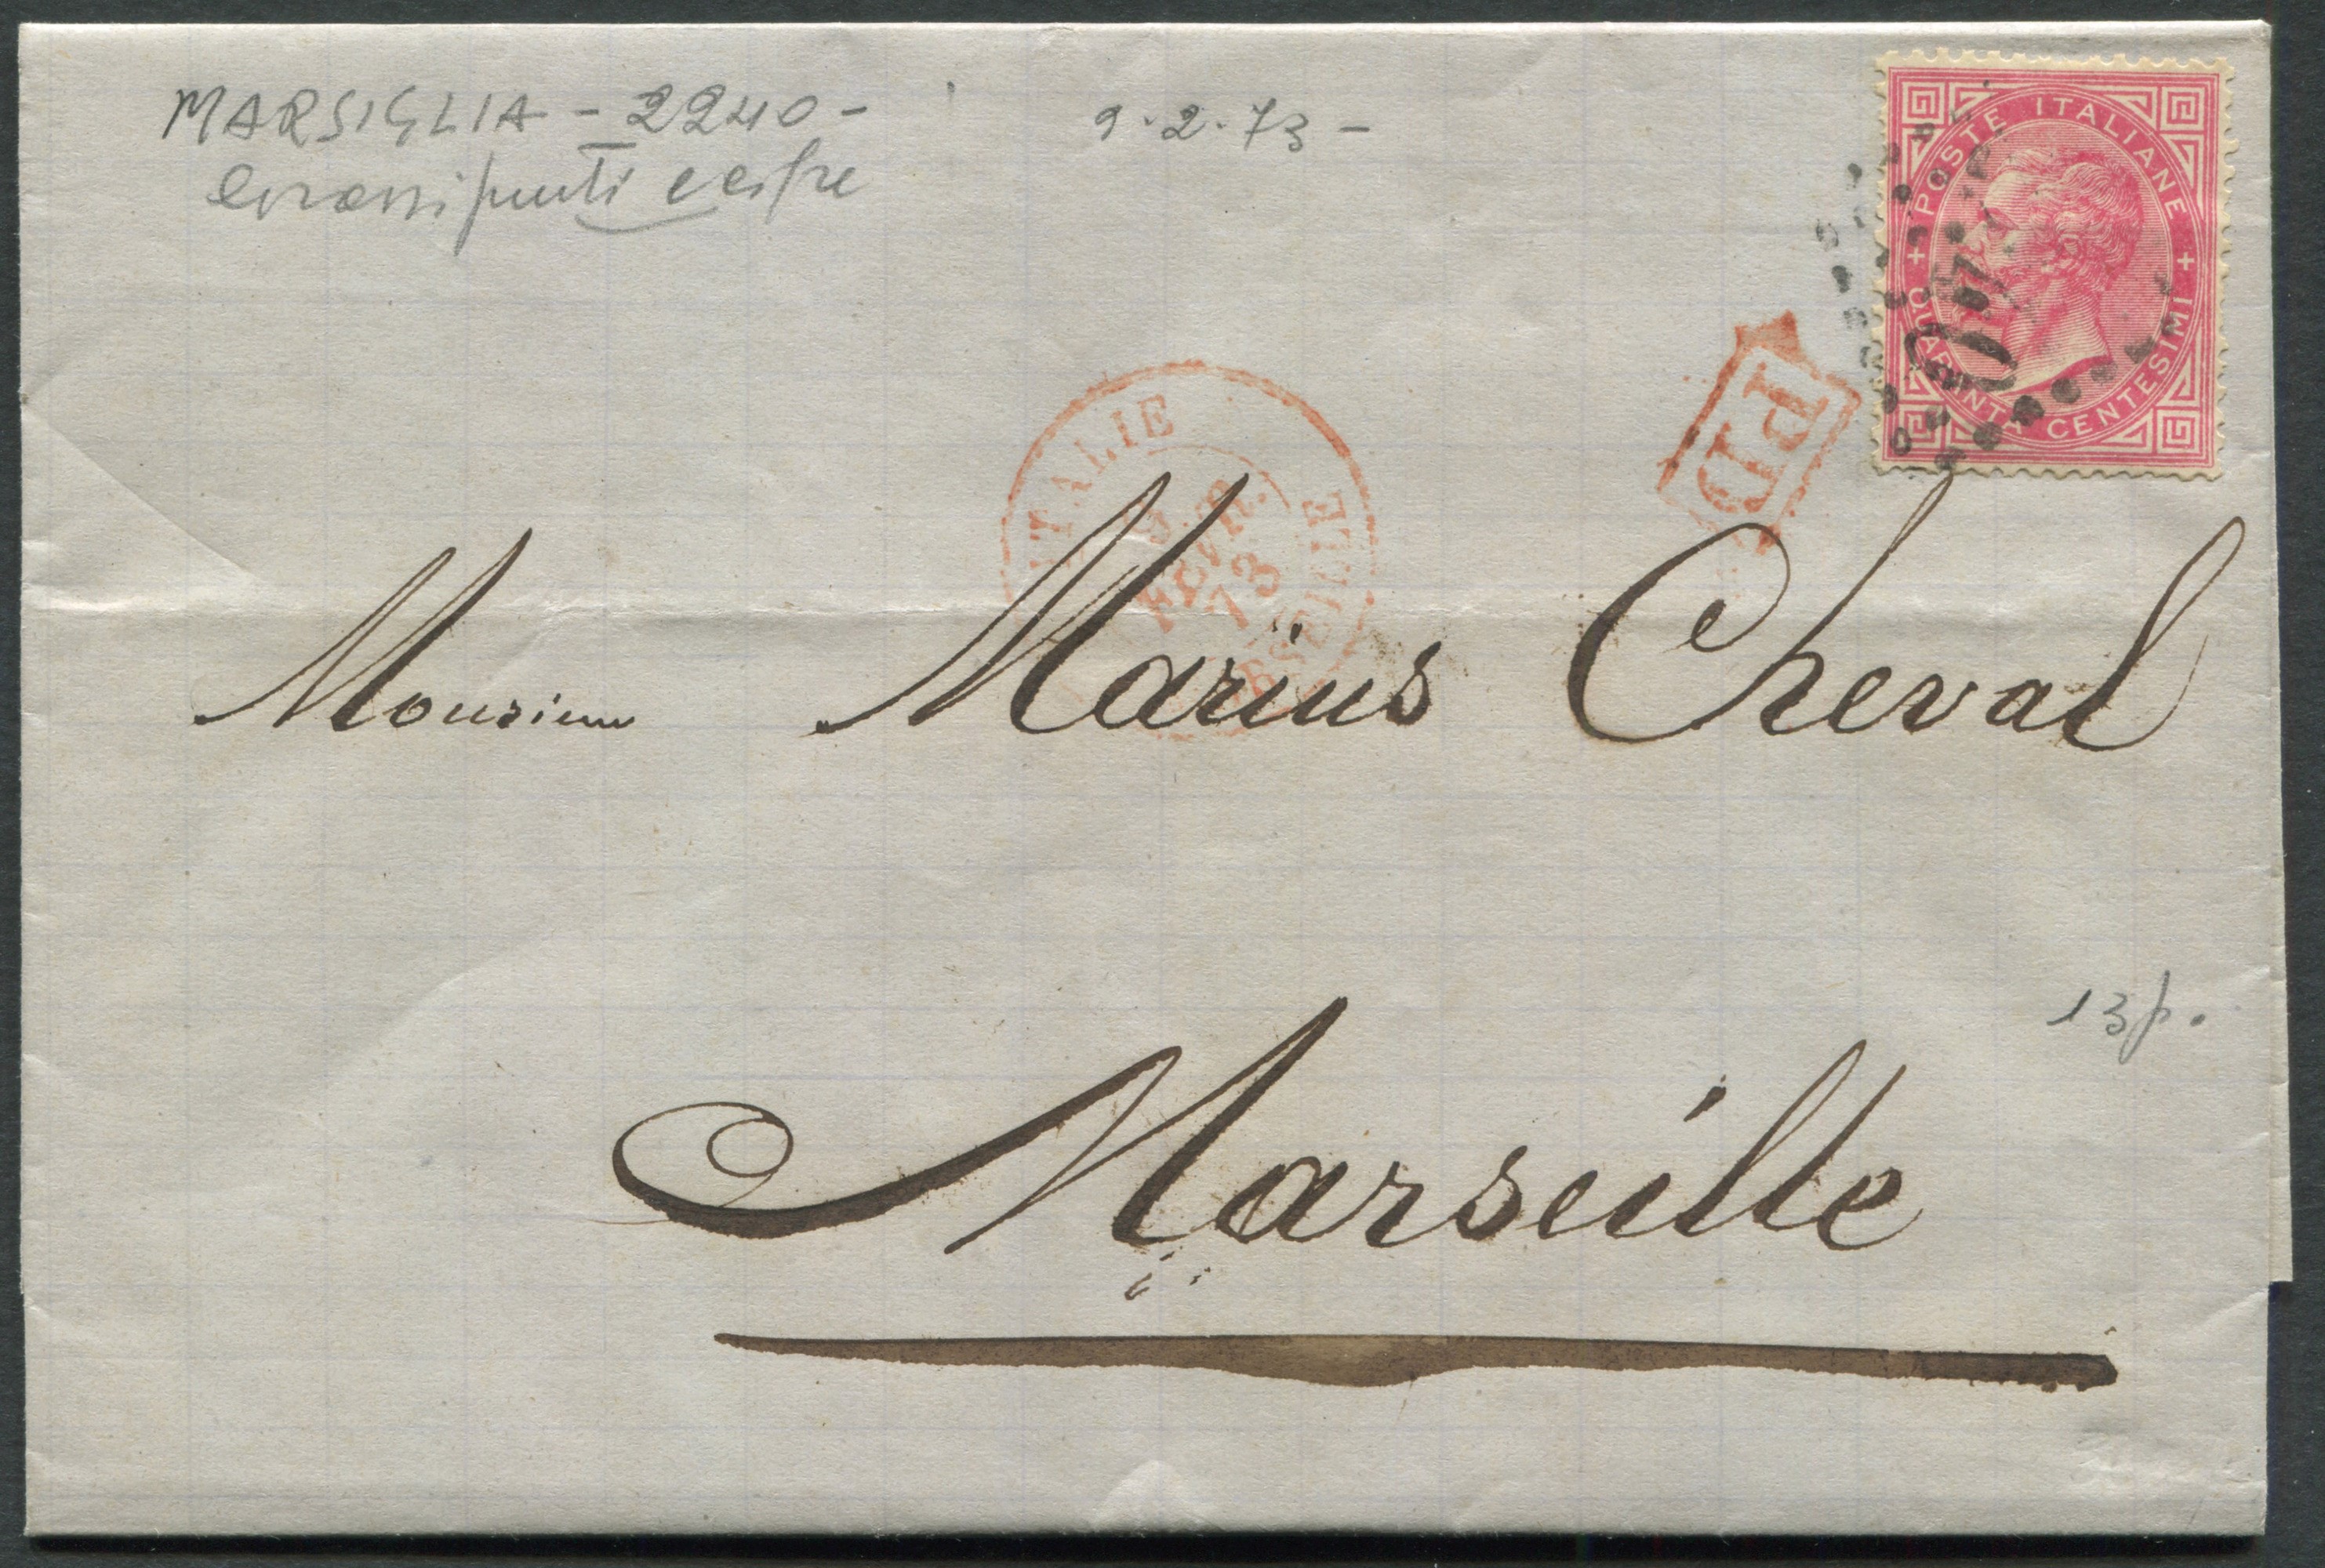 MARSIGLIA - 2240 -
grossi punti e cifre
9.2.73 -
POSTE ITALIANE
QUARANTA CENTESIMI
PD
ITALIE
9
FEVR.
73
MARSEILLE
Monsieur Marius Cheval
13 p.
Marseille